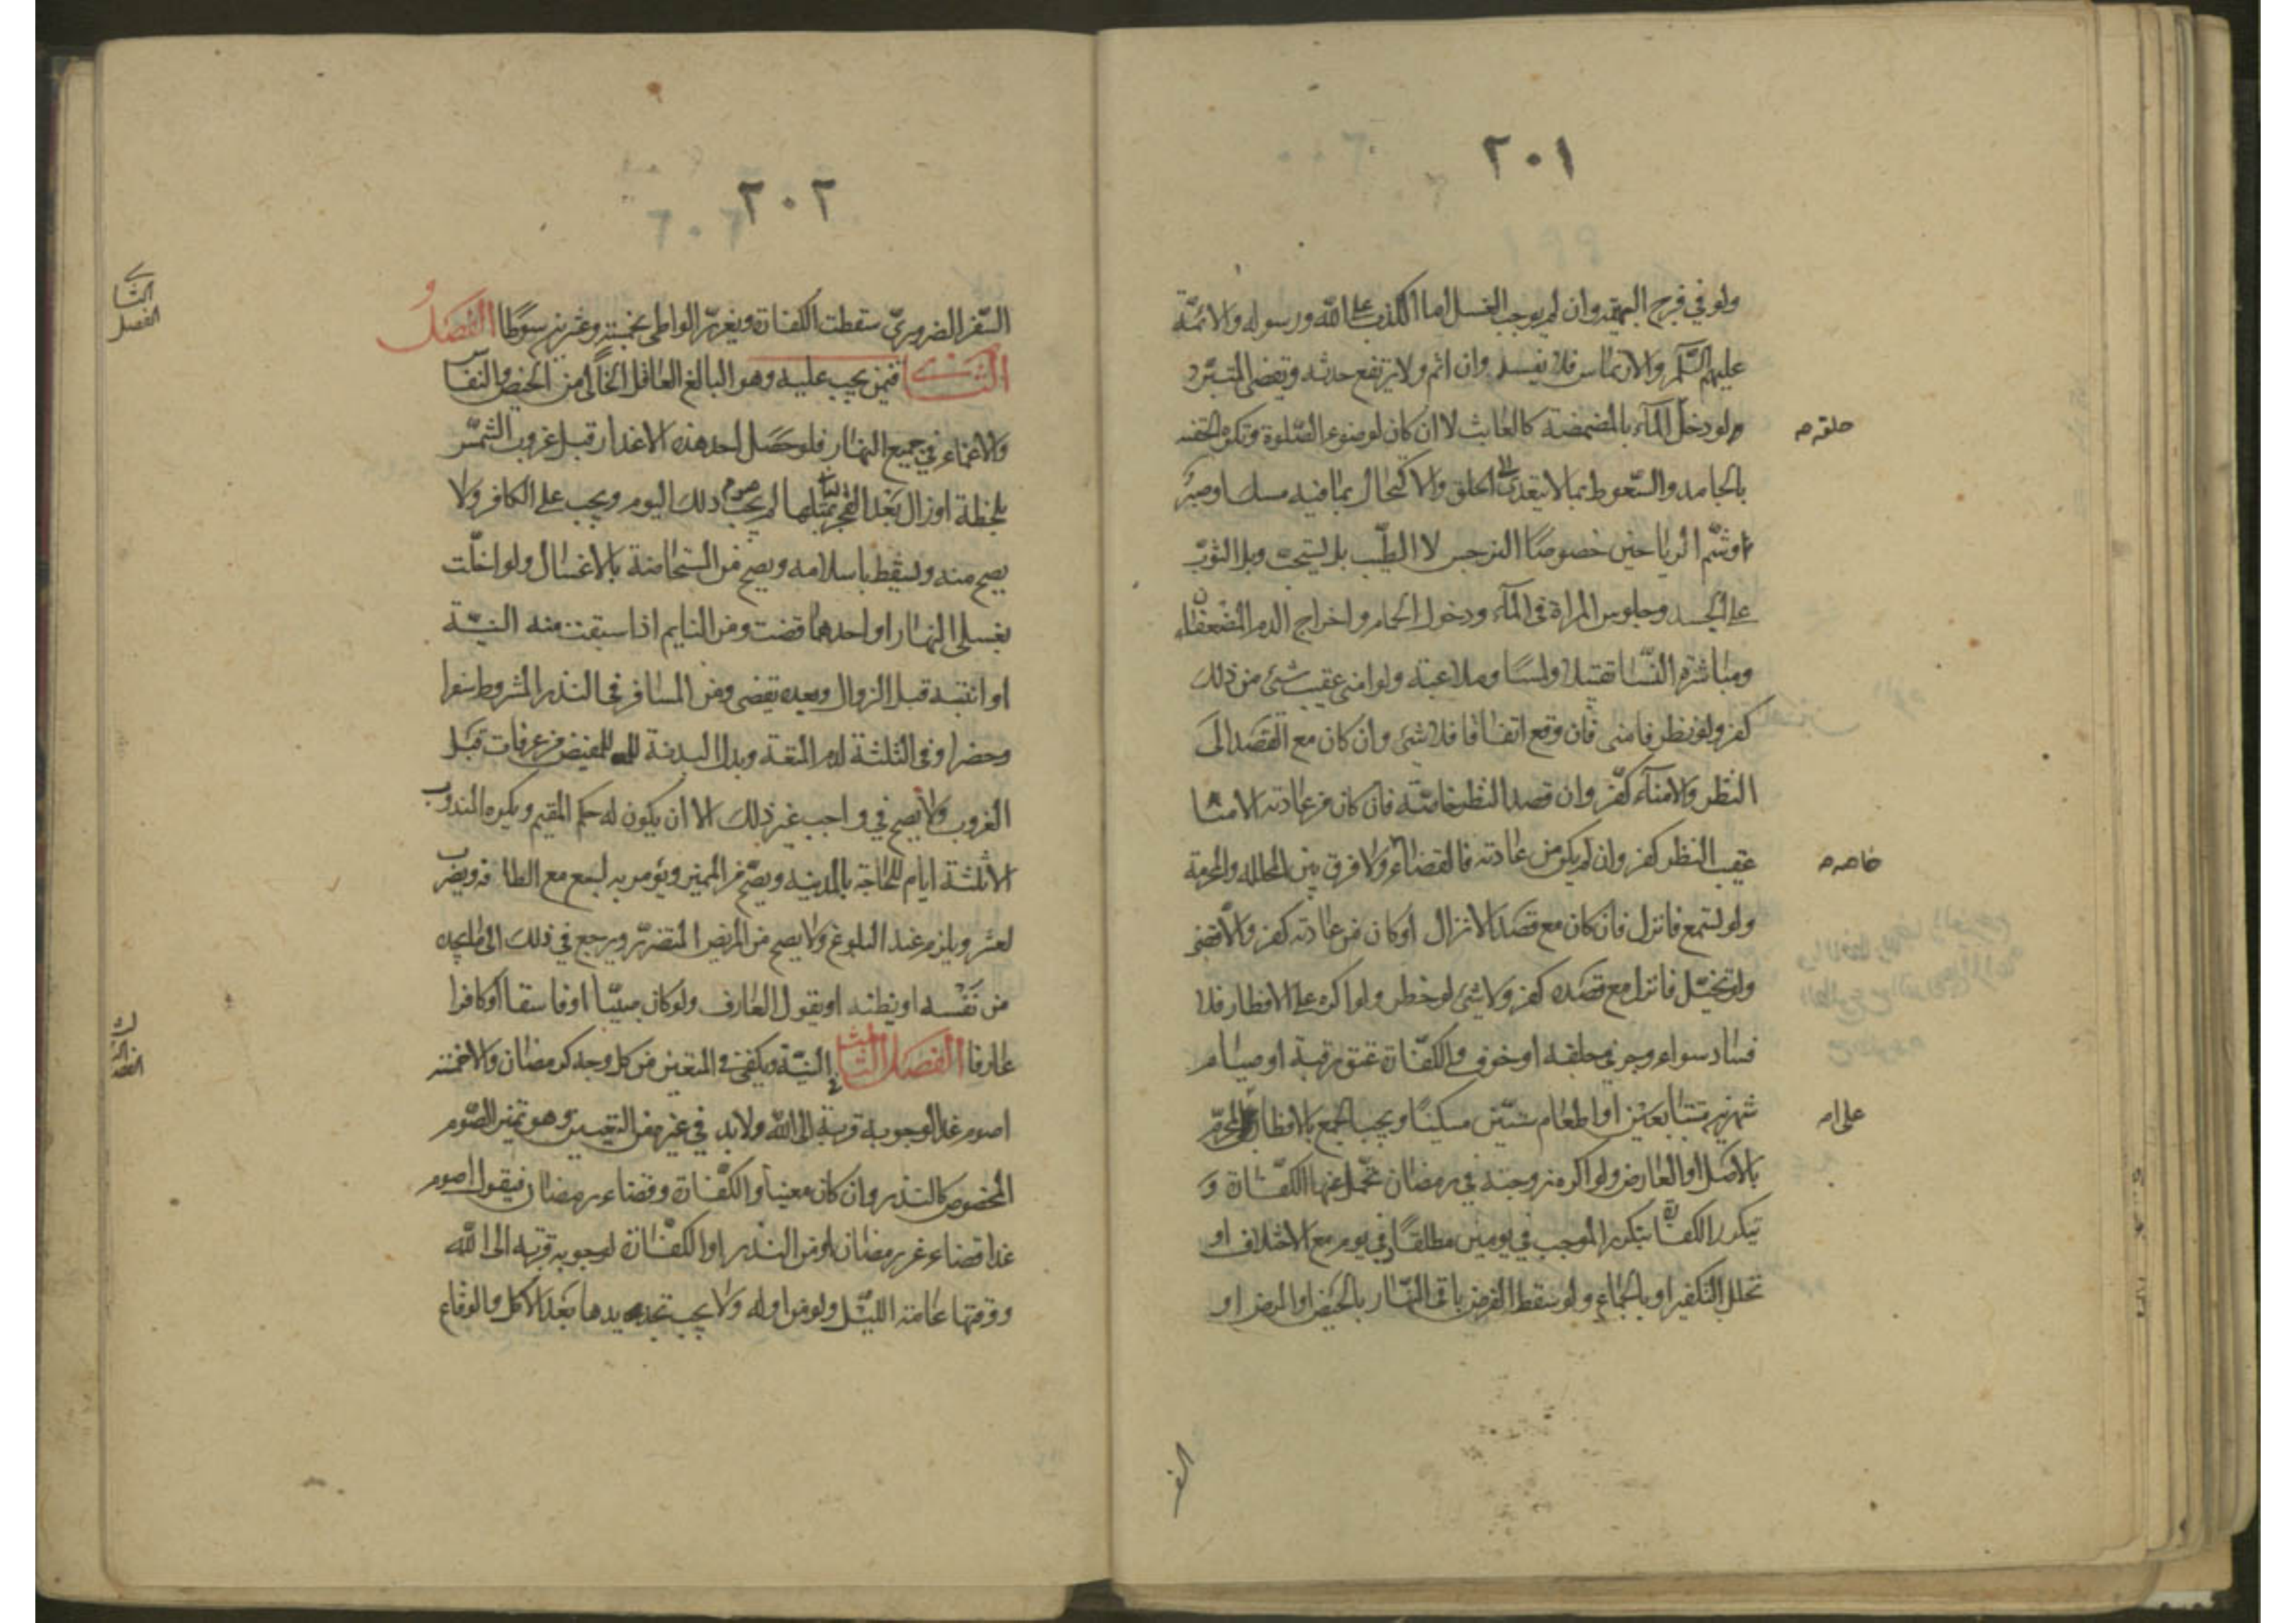 ٢٠١
ولو في فرج البهيمة وان لم يوجب الغسل اما الكذب على الله ورسوله والائمة
عليهم السلم والارتماس فلا يفسد وان اثم ولا يرتفع حدثه ويقضى المتبرد
ولو دخل المآء بالمضمضة كالعابث لا ان كان لوضوء الصلوة وتكره الحقنه
حلقه م
بالجامد والسعوط بما لا يتعدى الى الحلق والاكتحال بما فيه مسك او صبر
او شم الرياحين خصوصا النرجس لا الطيب بل يستحب وبل الثوب
على الجسد وجلوس المراة في المآء ودخول الحمام واخراج الدم المضعفان
ومباشرة النسا تقبيلا ولمسا وملاعبة ولو امنى عقيب شئ من ذلك
كفر ولو نظر فامنى فان وقع اتفاقا فلا شئ وان كان مع القصد الى
النظر والامنآء كفر وان قصد النظر خاصة فان كان من عادته الامنا
عقيب النظر كفر وان لم يكن من عادته فالقضاء ولا فرق بين المحلله والمحرمة
خاصه م
ولو استمع فانزل فان كان مع قصد الانزال او كان من عادته كفر والا قضى
ولو تخيل فانزل مع قصده كفر ولا شئ لو خطر ولو اكره على الافطار فلا
فساد سواء وجر في حلقه او خوف والكفارة عتق رقبة او صيام
شهرين متتابعين او اطعام ستين مسكينا ويجب الجمع بالافطار على المحرم
على ام
بالاصل او العارض ولو اكره زوجته في رمضان تحمل عنها الكفارة و
تتكرر الكفارة بتكرر الموجب في يومين مطلقا وفي يوم مع الاختلاف او
تخلل التكفير او بالجماع ولو سقط الفرض باقى النهار بالحيض او المرض او
السفر
٢٠٢
السفر الضروري سقطت الكفارة ويعزر الواطى بخمسة وعشرين سوطا الفصل
الثاني فيمن يجب عليه وهو البالغ العاقل الخالى من الحيض والنفاس
الفصل الثاني
والاغماء في جميع النهار فلو حصل احد هذه الاعذار قبل غروب الشمس
بلحظة او زال بعد الفجر بمثلها لم يجب صوم ذلك اليوم ويجب على الكافر ولا
يصح منه ويسقط باسلامه ويصح من المستحاضة بالاغسال ولو اخلت
بغسلى النهار او احدهما قضت ومن النايم اذا سبقت منه النية
او انتبه قبل الزوال وبعده يقضى ومن المسافر في النذر المشروط سفرا
وحضرا وفي الثلثة لدم المتعة وبدل البدنة للمفيض من عرفات قبل
الغروب ولا يصح في واجب غير ذلك الا ان يكون له حكم المقيم ويكره المندوب
الا ثلثة ايام للحاجة بالمدينه ويصح من المميز ويؤمر به لسبع مع الطاقه ويضرب
لعشر ويلزم عند البلوغ ولا يصح من المريض المتضرر ويرجع في ذلك الى ما يجده
من نفسه او يظنه او بقول العارف ولو كان صبيا او فاسقا او كافرا
عارفا الفصل الثالث في النية ويكفى في المتعين من كل وجه كرمضان والاخمسة
الفصل الثالث
اصوم غدا لوجوبه قربة الى الله ولا بد في غيره من التعيين وهو تميز الصوم
المخصوص كالنذر وان كان معينا والكفارة وقضاء رمضان فيقول اصوم
غدا قضاء عن رمضان او من النذر او الكفارة لوجوبه قربه الى الله
ووقتها عامة الليل ولو من اوله ولا يجب تجديدها بعد الاكل والوقاع